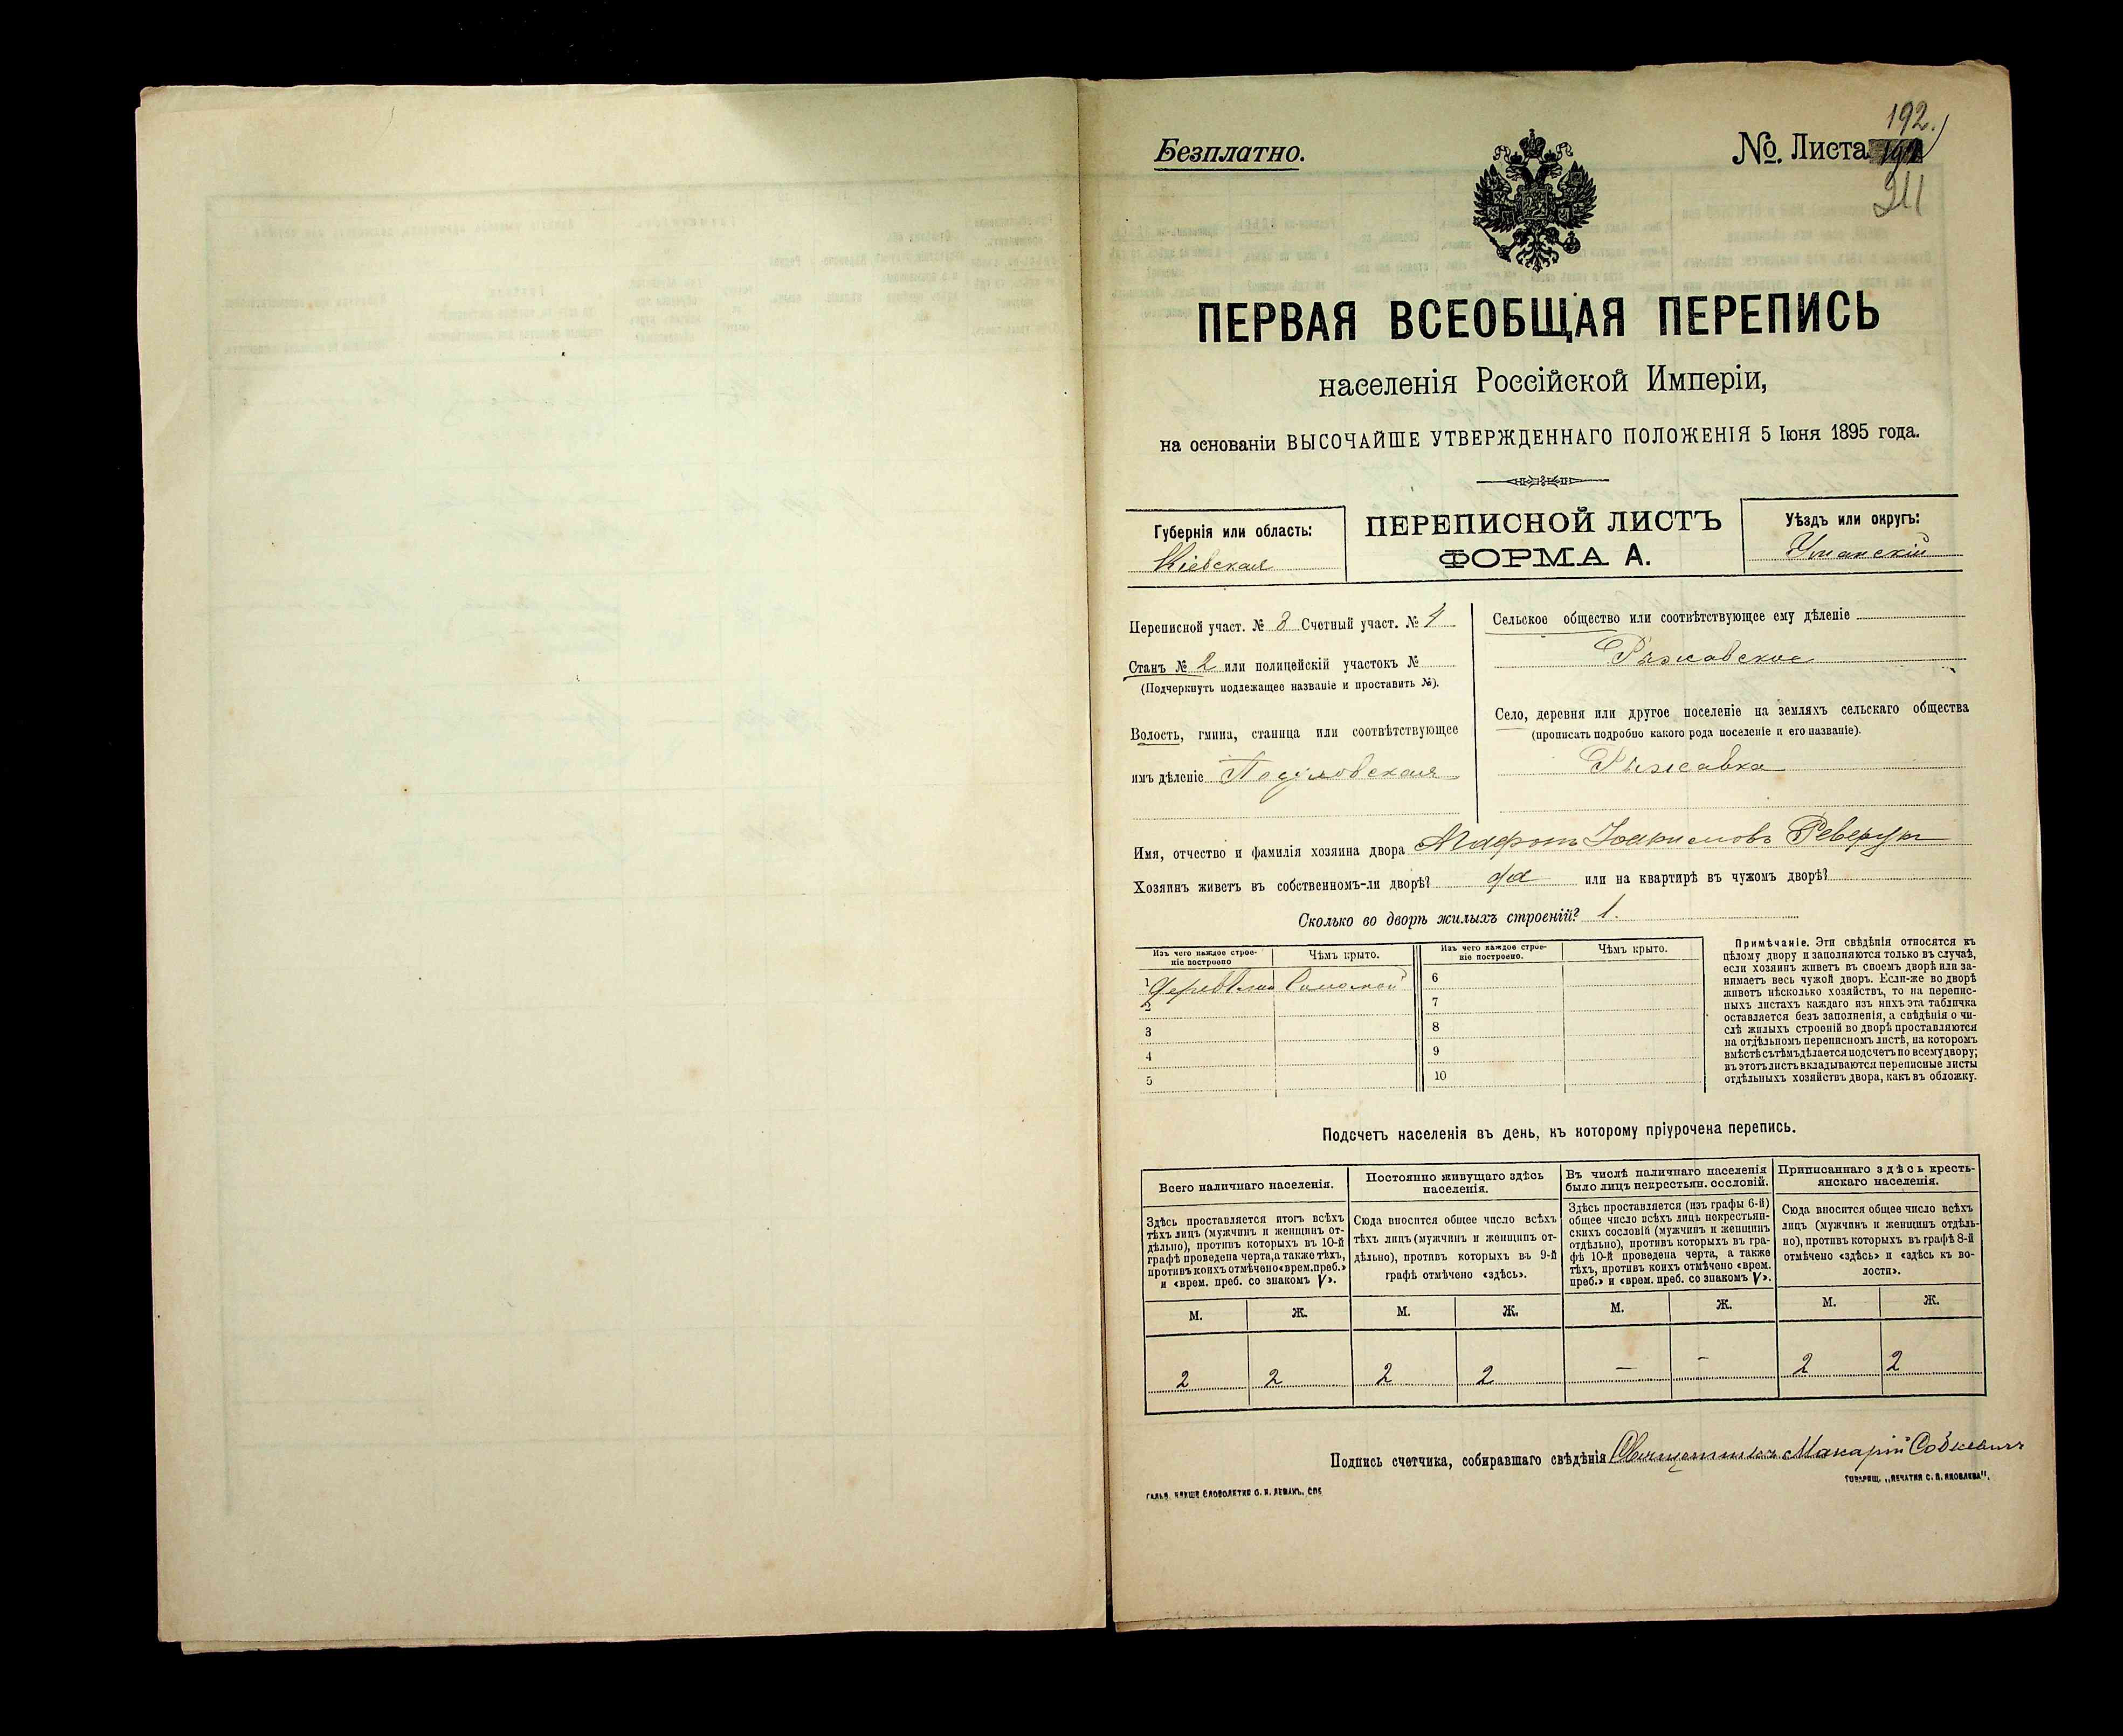 192.
Безплатно.
№. Листа
211
ПЕРВАЯ ВСЕОБЩАЯ ПЕРЕПИСЬ
населенія Россійской Имперіи,
на основаніи ВЫСОЧАЙШЕ УТВЕРЖДЕННАГО ПОЛОЖЕНІЯ 5 Іюня 1895 года.
Губернія или область:
Кіевская
ПЕРЕПИСНОЙ ЛИСТЪ
ФОРМА А.
Уѣздъ или округъ:
Уманскій
Переписной участ. № 8 Счетный участ. № 4
Станъ № 2 или полицейскій участокъ №
(Подчеркнуть подлежащее названіе и проставить №).
Волость, гмина, станица или соотвѣтствующее
имъ дѣленіе
Сельское общество или соотвѣтствующее ему дѣленіе
Рыжавское
Село, деревня или другое поселеніе на земляхъ сельскаго общества
(прописать подробно какого рода поселеніе и его названіе).
Рыжавка
Имя, отчество и фамилія хозяина двора Агафонъ Іоакимовъ Реверук
Хозяинъ живетъ въ собственномъ-ли дворѣ? да или на квартирѣ въ чужомъ дворѣ?
Сколько во дворѣ жилыхъ строеній? 1.
Изъ чего каждое строе-
ніе построено
Чѣмъ крыто.
1 Соломой
2
3
4
5
Изъ чего каждое строе-
ніе построено.
Чѣмъ крыто.
6
7
8
9
10
Примѣчаніе. Эти свѣдѣнія относятся къ
цѣлому двору и заполняются только въ случаѣ,
если хозяинъ живетъ въ своемъ дворѣ или за-
нимаетъ весь чужой дворъ. Если-же во дворѣ
живетъ нѣсколько хозяйствъ, то на перепис-
ныхъ листахъ каждаго изъ нихъ эта табличка
оставляется безъ заполненія, а свѣдѣнія о чи-
слѣ жилыхъ строеній во дворѣ проставляются
на отдѣльномъ переписномъ листѣ, на которомъ
вмѣстѣ съ тѣмъ дѣлается подсчетъ по всему двору;
въ этотъ листъ вкладываются переписные листы
отдѣльныхъ хозяйствъ двора, какъ въ обложку.
Подсчетъ населенія въ день, къ которому пріурочена перепись.
Всего наличнаго населенія.
Здѣсь проставляется итогъ всѣхъ
тѣхъ лицъ (мужчинъ и женщинъ от-
дѣльно), противъ которыхъ въ 10-й
графѣ проведена черта, а также тѣхъ,
противъ коихъ отмѣчено «врем. преб.»
и «врем. преб. со знакомъ V».
Постоянно живущаго здѣсь
населенія.
Сюда вносится общее число всѣхъ
тѣхъ лицъ (мужчинъ и женщинъ от-
дѣльно), противъ которыхъ въ 9-й
графѣ отмѣчено «здѣсь».
Въ числѣ наличнаго населенія
было лицъ некрестьян. сословій.
Здѣсь проставляется (изъ графы 6-й)
общее число всѣхъ лицъ некрестьян-
скихъ сословій (мужчинъ и женщинъ
отдѣльно), противъ которыхъ въ гра-
фѣ 10-й проведена черта, а также
тѣхъ, противъ коихъ отмѣчено «врем.
преб.» и «врем. преб. со знакомъ V».
Приписаннаго здѣсь кресть-
янскаго населенія.
Сюда вносится общее число всѣхъ
лицъ (мужчинъ и женщинъ отдѣль-
но), противъ которыхъ въ графѣ 8-й
отмѣчено «здѣсь» и «здѣсь къ во-
лости».
М. Ж. М. Ж. М. Ж. М. Ж.
2 2 2 2 — – 2 2
Подпись счетчика, собиравшаго свѣдѣнія Священникъ Макарій Собкевичъ
ТОВАРИЩ. „ПЕЧАТНЯ С. П. ЯКОВЛЕВА“.